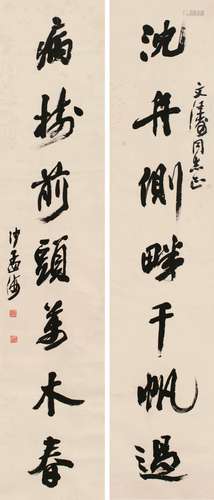 沈舟側畔千帆過
文[?]同志正
病樹前頭萬木春
沙孟海